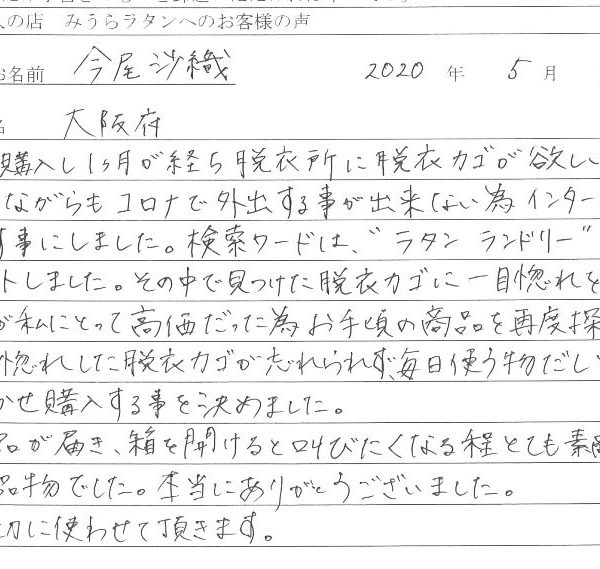 人の店 みうらラタンへのお客様の声
お名前 今尾沙織 2020 年 5 月
名 大阪府
購入し1ヶ月が経ち脱衣所に脱衣カゴが欲しい
ながらもコロナで外出する事が出来ない為インター
す事にしました。検索ワードは、"ラタン ランドリー"
トしました。その中で見つけた脱衣カゴに一目惚れを
が私にとって高価だった為お手頃の商品を再度探
惚れした脱衣カゴが忘れられず、毎日使う物だし
かせ購入する事を決めました。
品が届き、箱を開けると叫びたくなる程とても素
品物でした。本当にありがとうございました。
切に使わせて頂きます。